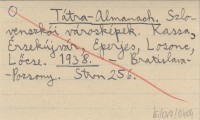 Tátra-Almanach. Szlo-
venszkói városképek. Kassa,
Érsekújvár, Eperjes, Losonc,
Lőcse. 1938. - Bratislava-
Pozsony. Str. 256.